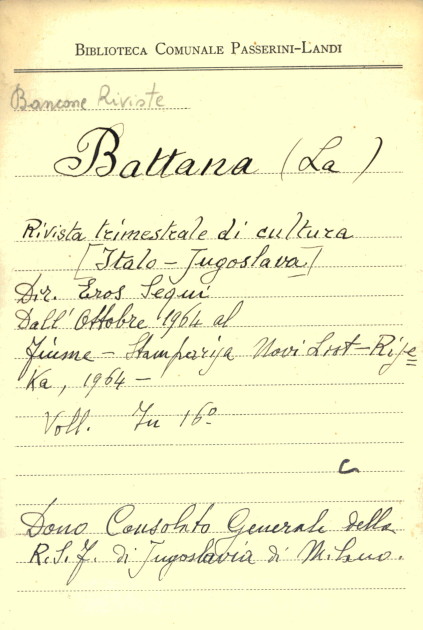 BIBLIOTECA COMUNALE PASSERINI-LANDI
Bancone Riviste
Battana (La)
Rivista trimestrale di cultura
[Italo - Jugoslava]
Dir. Eros Sequi
Dall'Ottobre 1964 al
Fiume - Stamparija Novi List - Rije
Ka, 1964 -
Voll. In 16°
C
Dono Consolato Generale della
R.S.F. di Jugoslavia di Milano.